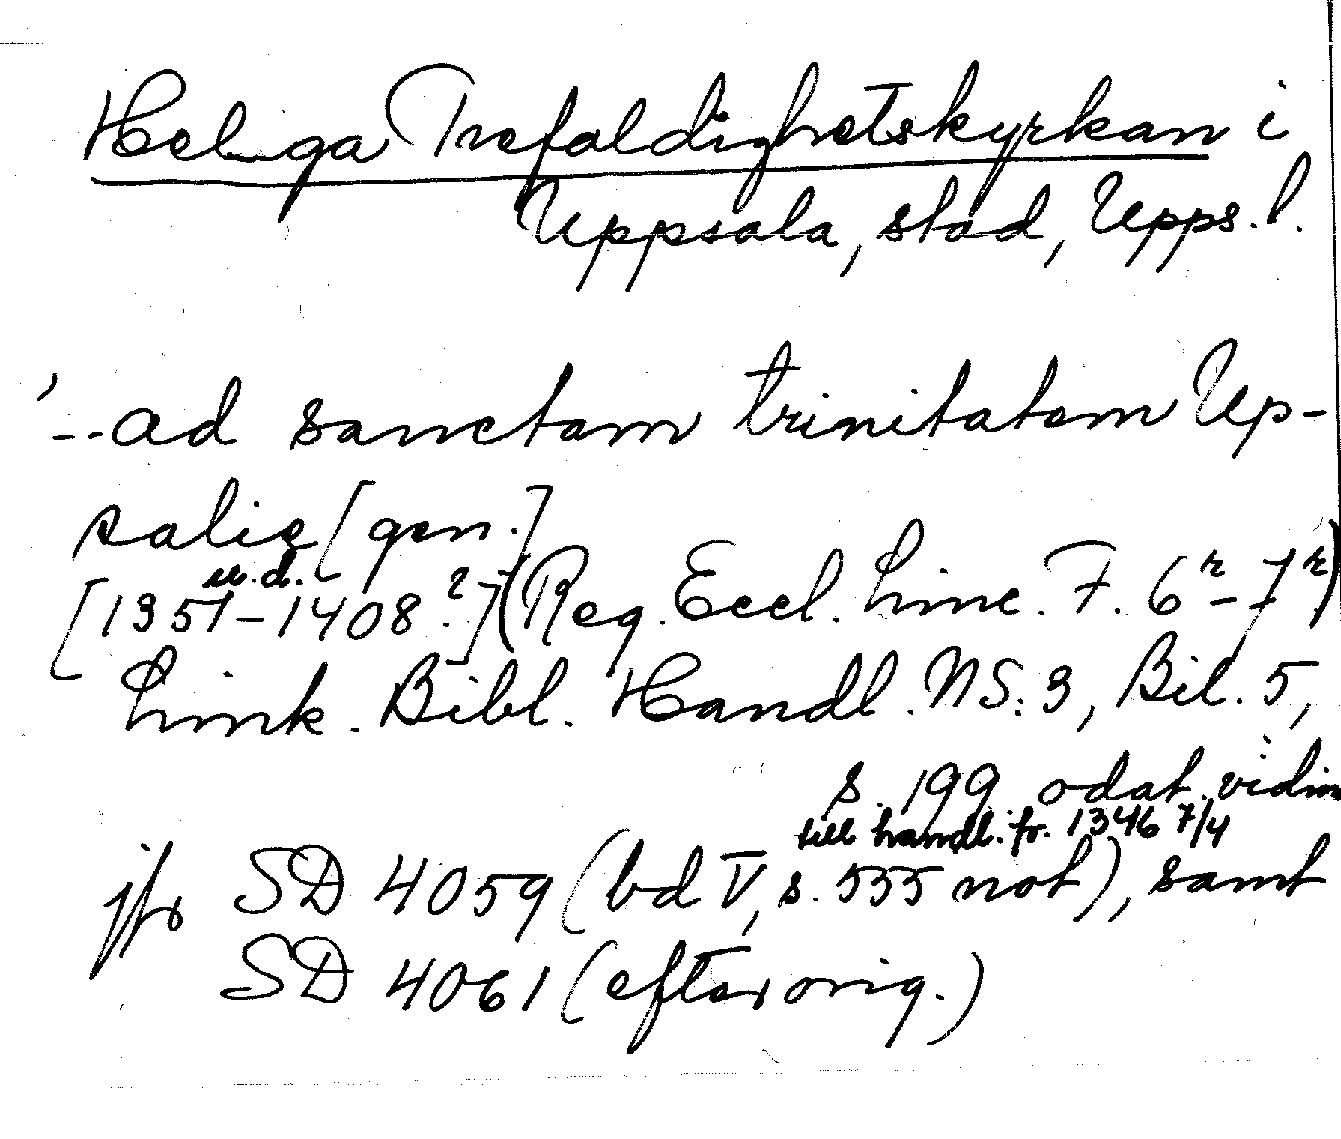 Helga Trefaldighetskyrkan i
Uppsala, stad, Upps. l.
'--ad sanctam trinitatem Up-
salie [gen.]
u.d.
[1351-1408?] (Reg. Eccl. Linc. F. 6r-7r)
Link. Bibl. Handl. NS:3, Bil. 5,
s. 199 odat. vidim
till handl. fr. 1346 7/4
jfr SD 4059 (bd V, s. 555 not), samt
SD 4061 (efter orig.)